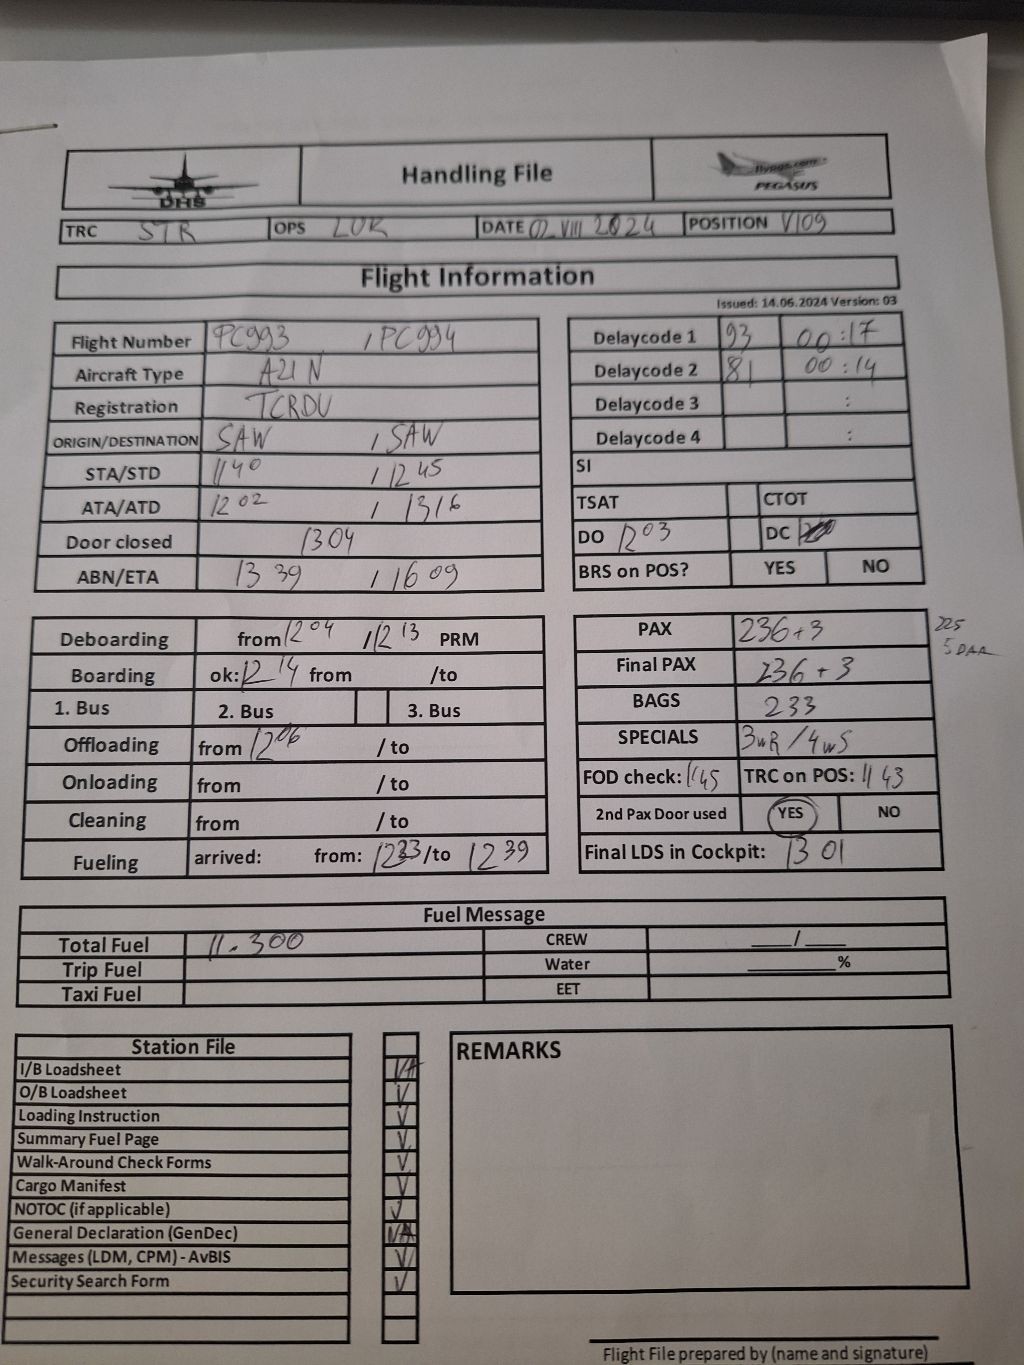 DHS Handling File flypgs.com PEGASUS
TRC STR OPS LUK DATE 02.VIII 2024 POSITION V109
Flight Information
Issued: 14.06.2024 Version: 03
Flight Number PC993 / PC994
Aircraft Type A21N
Registration TCRDU
ORIGIN/DESTINATION SAW / SAW
STA/STD 1140 / 1245
ATA/ATD 1202 / 1316
Door closed 1304
ABN/ETA 1339 / 1609
Delaycode 1 93 00:17
Delaycode 2 81 00:14
Delaycode 3 :
Delaycode 4 :
SI
TSAT CTOT
DO 1203 DC
BRS on POS? YES NO
Deboarding from 1204 / 1213 PRM
Boarding ok: 1214 from /to
1. Bus 2. Bus 3. Bus
Offloading from 1206 / to
Onloading from / to
Cleaning from / to
Fueling arrived: from: 1233 /to 1239
PAX 236+3 225
5
Final PAX 236+3
BAGS 233
SPECIALS 3WR/4WS
FOD check: 1145 TRC on POS: 1143
2nd Pax Door used YES NO
Final LDS in Cockpit: 1301
Fuel Message
Total Fuel 11.300 CREW ____/____
Trip Fuel Water ________%
Taxi Fuel EET
Station File
I/B Loadsheet NA
O/B Loadsheet V
Loading Instruction V
Summary Fuel Page V
Walk-Around Check Forms V
Cargo Manifest V
NOTOC (if applicable) V
General Declaration (GenDec) NA
Messages (LDM, CPM) - AvBIS V
Security Search Form V
REMARKS
Flight File prepared by (name and signature)